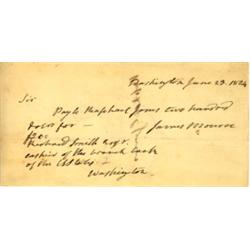 Washington June 23. 1824
Sir
Pay to Raphael Jones two hundred
dolrs for —
James Monroe
Richard Smith Esqr.
cashier of the branch bank
of the UStates
Washington